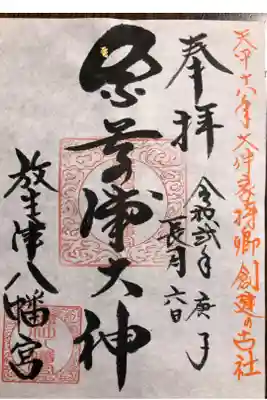 天平十八年大伴家持卿創建の古社
奉拝
令和弐年庚子
長月六日
奈呉浦大神
放生津八幡宮